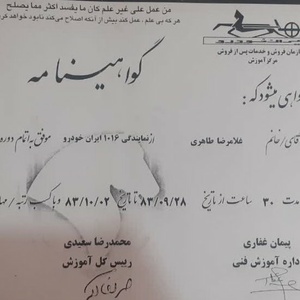 من عمل علی غیر علم کان ما یفسد اکثر مما یصلح
هر که بی علم، عمل کند بیش از آنکه اصلاح می‌کند نابود خواهد کرد
فروش و خدمات پس از فروش
مرکز آموزش
گواهینامه
میشود که:
غلامرضا طاهری
از نمایندگی ۱۰۱۶ ایران خودرو
موفق به اتمام دوره
۳۰ ساعت از تاریخ ۸۳/۰۹/۲۸ تا تاریخ ۸۳/۱۰/۰۲ و با کسب رتبه
پیمان غفاری
محمدرضا سعیدی
اداره آموزش فنی
رییس کل آموزش